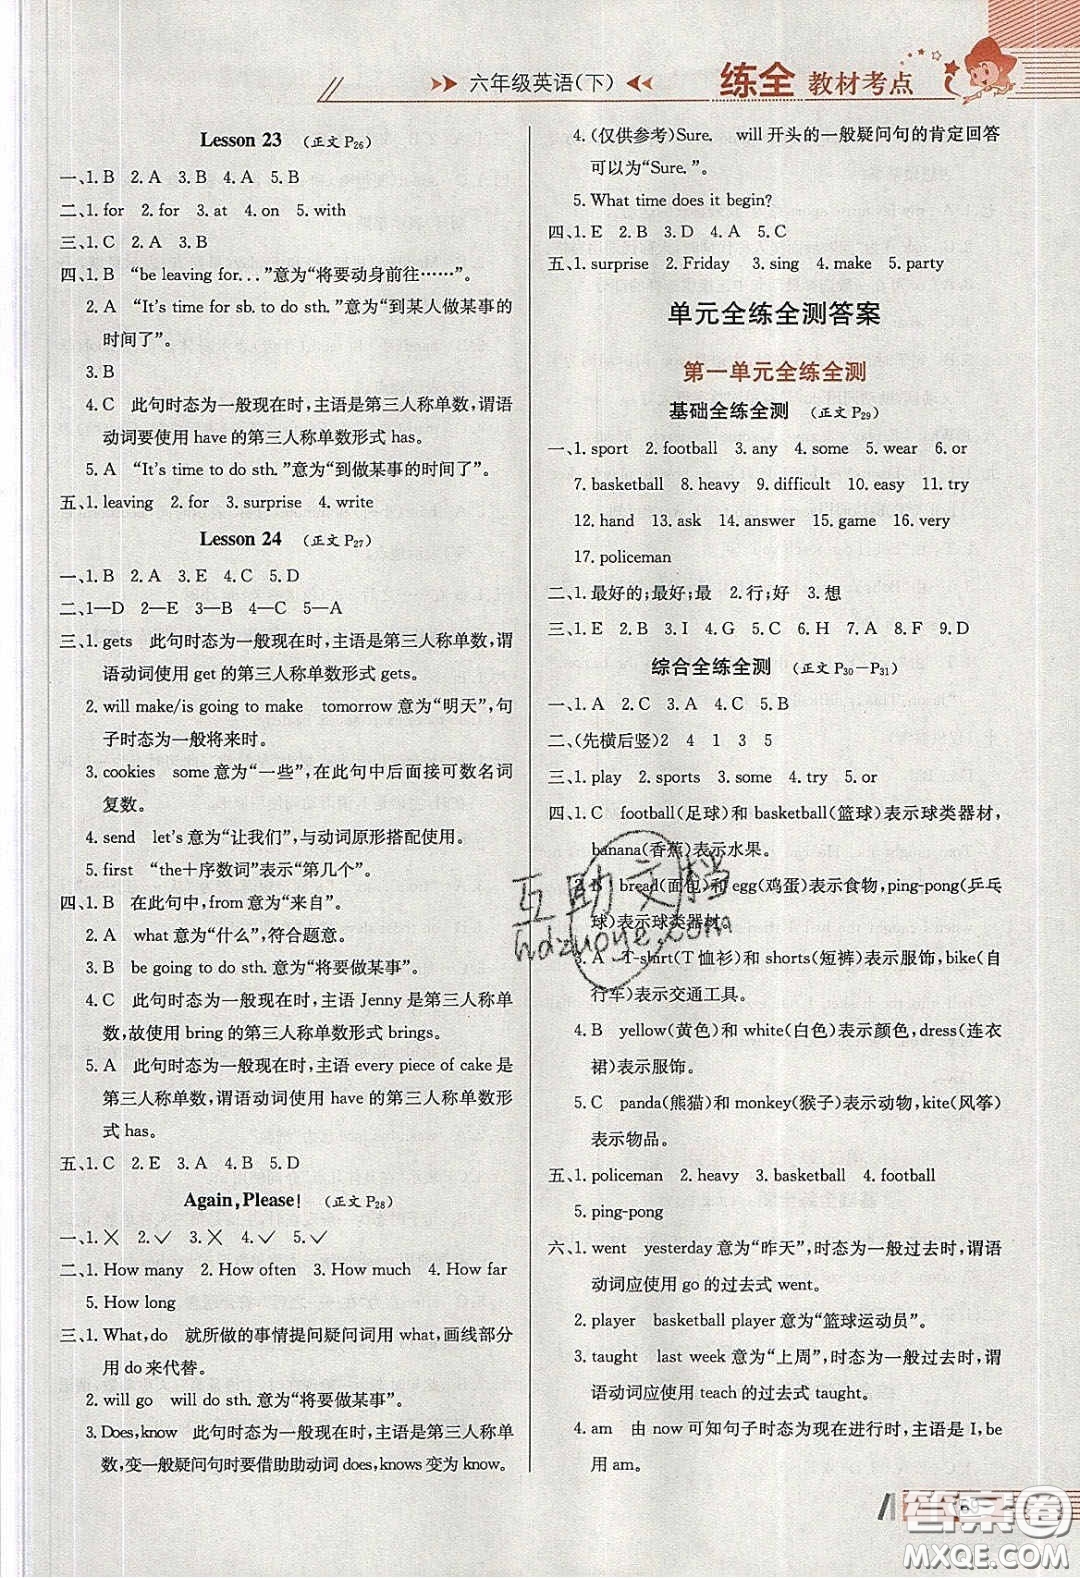 六年级英语(下)
练全 教材考点
Lesson 23 (正文 P26)
一、1. B 2. A 3. B 4. A 5. B
二、1. for 2. for 3. at 4. on 5. with
三、1. C 2. A 3. B
四、1. B “be leaving for...”意为“将要动身前往……”。
2. A “It's time for sb. to do sth.”意为“到某人做某事的
时间了”。
3. B
4. C 此句时态为一般现在时，主语是第三人称单数，谓语
动词要使用 have 的第三人称单数形式 has。
5. A “It's time to do sth.”意为“到做某事的时间了”。
五、1. leaving 2. for 3. surprise 4. write
Lesson 24 (正文 P27)
一、1. B 2. A 3. E 4. C 5. D
二、1—D 2—E 3—B 4—C 5—A
三、1. gets 此句时态为一般现在时，主语是第三人称单数，谓
语动词使用 get 的第三人称单数形式 gets。
2. will make/is going to make tomorrow 意为“明天”，句
子时态为一般将来时。
3. cookies some 意为“一些”，在此句中后面接可数名词
复数。
4. send let's 意为“让我们”，与动词原形搭配使用。
5. first “the＋序数词”表示“第几个”。
四、1. B 在此句中，from 意为“来自”。
2. A what 意为“什么”，符合题意。
3. B be going to do sth. 意为“将要做某事”。
4. C 此句时态为一般现在时，主语 Jenny 是第三人称单
数，故使用 bring 的第三人称单数形式 brings。
5. A 此句时态为一般现在时，主语 every piece of cake 是
第三人称单数，谓语动词使用 have 的第三人称单数形
式 has。
五、1. C 2. E 3. A 4. B 5. D
Again, Please! (正文 P28)
一、1. ╳ 2. ✓ 3. ╳ 4. ✓ 5. ✓
二、1. How many 2. How often 3. How much 4. How far
5. How long
三、1. What, do 就所做的事情提问疑问词用 what，画线部分
用 do 来代替。
2. will go will do sth. 意为“将要做某事”。
3. Does, know 此句时态为一般现在时，主语是第三人称单
数，变一般疑问句时要借助助动词 does, knows 变为 know。
4. (仅供参考)Sure. will 开头的一般疑问句的肯定回答
可以为“Sure.”。
5. What time does it begin?
四、1. E 2. B 3. D 4. A 5. C
五、1. surprise 2. Friday 3. sing 4. make 5. party
单元全练全测答案
第一单元全练全测
基础全练全测 (正文 P29)
一、1. sport 2. football 3. any 4. some 5. wear 6. or
7. basketball 8. heavy 9. difficult 10. easy 11. try
12. hand 13. ask 14. answer 15. game 16. very
17. policeman
二、1. 最好的；最好；最 2. 行；好 3. 想
三、1. E 2. B 3. I 4. G 5. C 6. H 7. A 8. F 9. D
综合全练全测 (正文 P30－P31)
一、1. A 2. C 3. A 4. C 5. B
二、(先横后竖)2 4 1 3 5
三、1. play 2. sports 3. some 4. try 5. or
四、1. C football(足球)和 basketball(篮球)表示球类器材，
banana(香蕉)表示水果。
2. B bread(面包)和 egg(鸡蛋)表示食物，ping-pong(乒乓
球)表示球类器材。
3. A T-shirt(T 恤衫)和 shorts(短裤)表示服饰，bike(自
行车)表示交通工具。
4. B yellow(黄色)和 white(白色)表示颜色，dress(连衣
裙)表示服饰。
5. C panda(熊猫)和 monkey(猴子)表示动物，kite(风筝)
表示物品。
五、1. policeman 2. heavy 3. basketball 4. football
5. ping-pong
六、1. went yesterday 意为“昨天”，时态为一般过去时，谓语
动词应使用 go 的过去式 went。
2. player basketball player 意为“篮球运动员”。
3. taught last week 意为“上周”，时态为一般过去时，谓
语动词应使用 teach 的过去式 taught。
4. am 由 now 可知句子时态为现在进行时，主语是 I，be
用 am。
互助文档
hdzuoye.com
答案圈
MXQE.COM